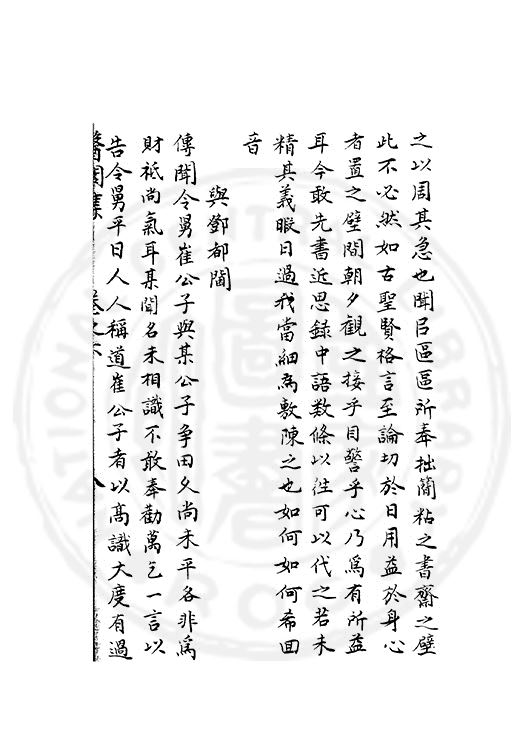 之以周其急也聞㠯區區所奉拙簡粘之書齋之壁
此不必然如古聖賢格言至論切於日用益於身心
者置之壁間朝夕觀之接乎目警乎心乃為有所益
耳今敢先書近思錄中語數條以往可以代之若未
精其義暇日過我當細為敷陳之也如何如何希回
音
與鄧都閫
傳聞令舅崔公子與某公子爭田久尚未平各非為
財祗尚氣耳某聞名未相識不敢奉勸萬乞一言以
告令舅平日人人稱道崔公子者以高識大度有過
醫閭集 卷之六 八